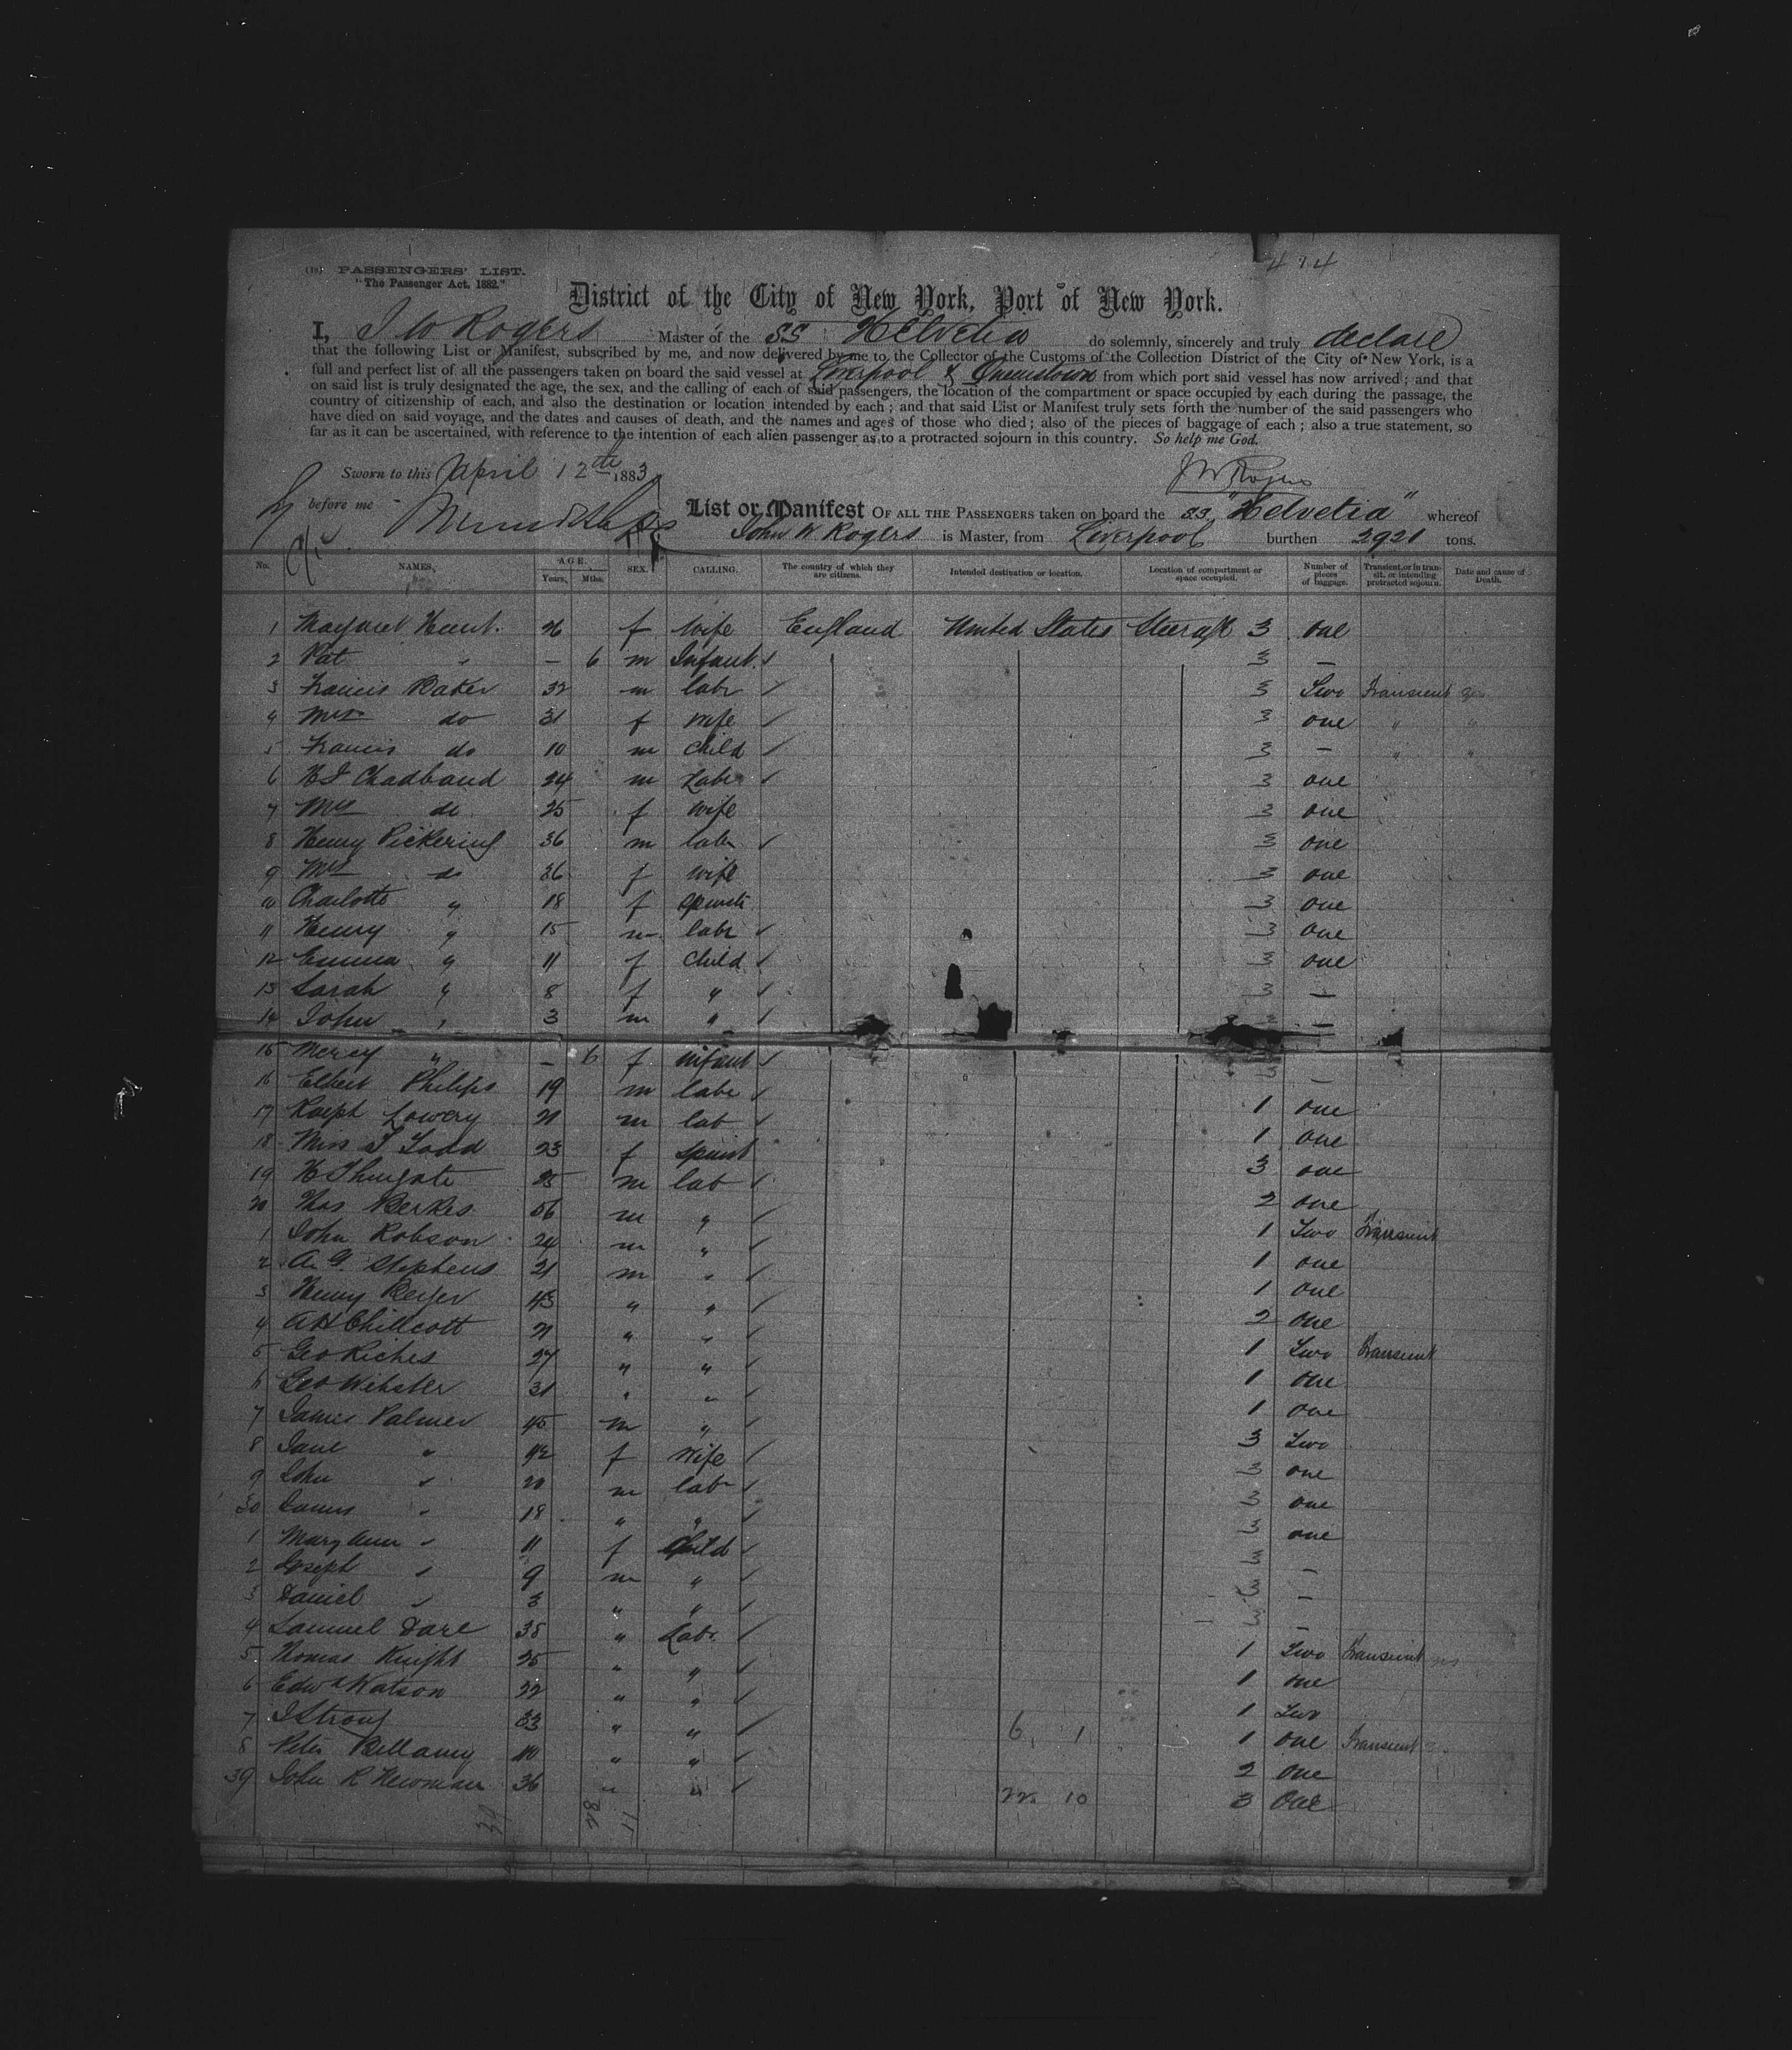 414
(18) PASSENGERS' LIST.
"The Passenger Act, 1882."
District of the City of New York, Port of New York.
I, J W Rogers Master of the SS Helvetia do solemnly, sincerely and truly declare
that the following List or Manifest, subscribed by me, and now delivered by me to the Collector of the Customs of the Collection District of the City of New York, is a
full and perfect list of all the passengers taken on board the said vessel at Liverpool & Queenstown from which port said vessel has now arrived; and that
on said list is truly designated the age, the sex, and the calling of each of said passengers, the location of the compartment or space occupied by each during the passage, the
country of citizenship of each, and also the destination or location intended by each; and that said List or Manifest truly sets forth the number of the said passengers who
have died on said voyage, and the dates and causes of death, and the names and ages of those who died; also of the pieces of baggage of each; also a true statement, so
far as it can be ascertained, with reference to the intention of each alien passenger as to a protracted sojourn in this country. So help me God.
Sworn to this April 12th 1883 J W Rogers
before me List or Manifest OF ALL THE PASSENGERS taken on board the SS. "Helvetia" whereof
John W. Rogers is Master, from Liverpool burthen 2921 tons.
No. NAMES. AGE. Years. Mths. SEX. CALLING. The country of which they are citizens. Intended destination or location. Location of compartment or space occupied. Number of pieces of baggage. Transient, or in transit, or intending protracted sojourn. Date and cause of Death.
1 Margaret Hunt. 26 f Wife England United States Steerage 3 one
2 Pat " — 6 m Infant 3 —
3 Francis Baker 32 m labr 3 Two Transient
4 Mrs do 31 f wife 3 one "
5 Francis do 10 m child 3 — "
6 Chadband 24 m Labr 3 one
7 Mrs do 25 f wife 3 one
8 Henry Pickering 36 m labr 3 one
9 Mrs do 36 f wife 3 one
10 Charlotte " 18 f spinst 3 one
11 Henry " 15 m labr 3 one
12 Emma " 11 f child 3 one
13 Sarah " 8 f " 3 —
14 John " 3 m " 3 —
15 Mercy " — 6 f infant 3 —
16 Elbert Philips 19 m labr 1 one
17 Ralph Lowery 21 m lab 1 one
18 Miss T Todd 23 f spinst 3 one
19 H Thurgate 25 m lab 2 one
20 Thos Berkes 56 m " 1 Two Transient
1 John Robson 24 m " 1 one
2 A. G. Stephens 21 m " 1 one
3 Henry 43 " " 2 one
4 A H Chillcott 21 " " 1 Two Transient
5 Geo Riches 27 " " 1 one
6 Geo Webster 31 " " 1 one
7 James Palmer 45 m " 3 Two
8 Jane " 42 f Wife 3 one
9 John " 20 m lab 3 one
30 James " 18 " " 3 one
1 Mary Ann " 11 f Child 3 —
2 Joseph " 9 m " 3 —
3 Daniel " 3 " " 3 —
4 Samuel Dare 35 " Labr 1 Two Transient
5 Thomas Knight 25 " " 1 one
6 Edwd Watson 22 " " 1 Two
7 J Strong 33 " " 6 1 1 one Transient
8 Peter Bellamy 40 " " 2 one
39 John R Newman 36 " " 22 10 3 One
39 28 11